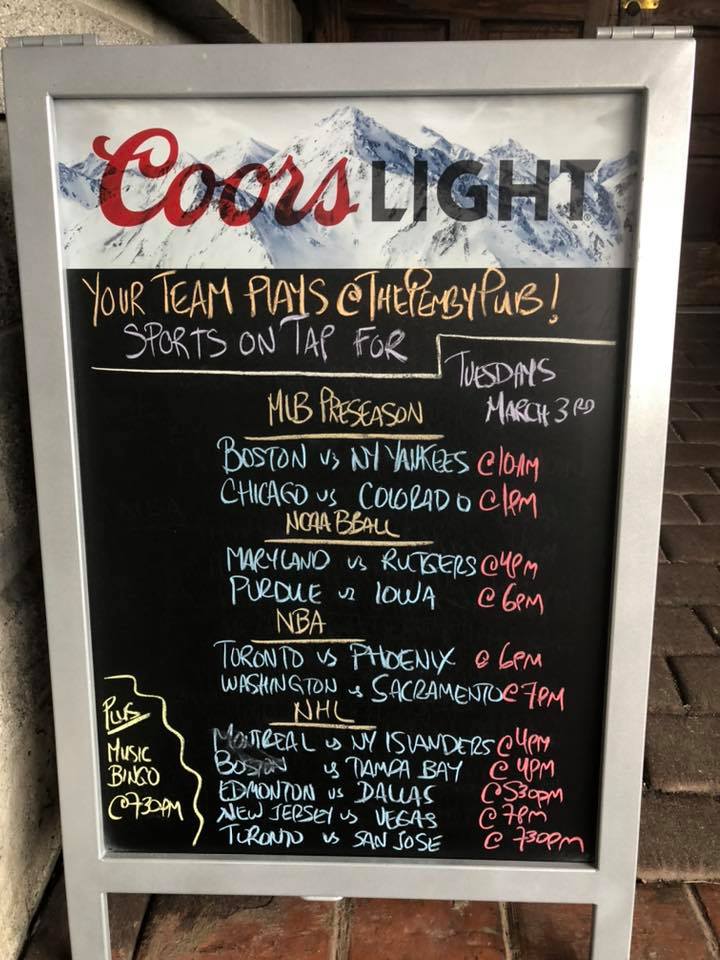 Coors LIGHT
YOUR TEAM PLAYS @THEPEMBYPUB!
SPORTS ON TAP FOR
TUESDAYS
MARCH 3RD
MLB PRESEASON
BOSTON VS NY YANKEES @10AM
CHICAGO VS COLORADO @1PM
NCAA BBALL
MARYLAND VS RUTGERS @4PM
PURDUE VS IOWA @ 6PM
NBA
TORONTO VS PHOENIX @ 6PM
WASHINGTON VS SACRAMENTO @ 7PM
NHL
MONTREAL VS NY ISLANDERS @ 4PM
BOSTON VS TAMPA BAY @ 4PM
EDMONTON VS DALLAS @530PM
NEW JERSEY VS VEGAS @ 7PM
TORONTO VS SAN JOSE @ 730PM
PLUS
MUSIC
BINGO
@730PM